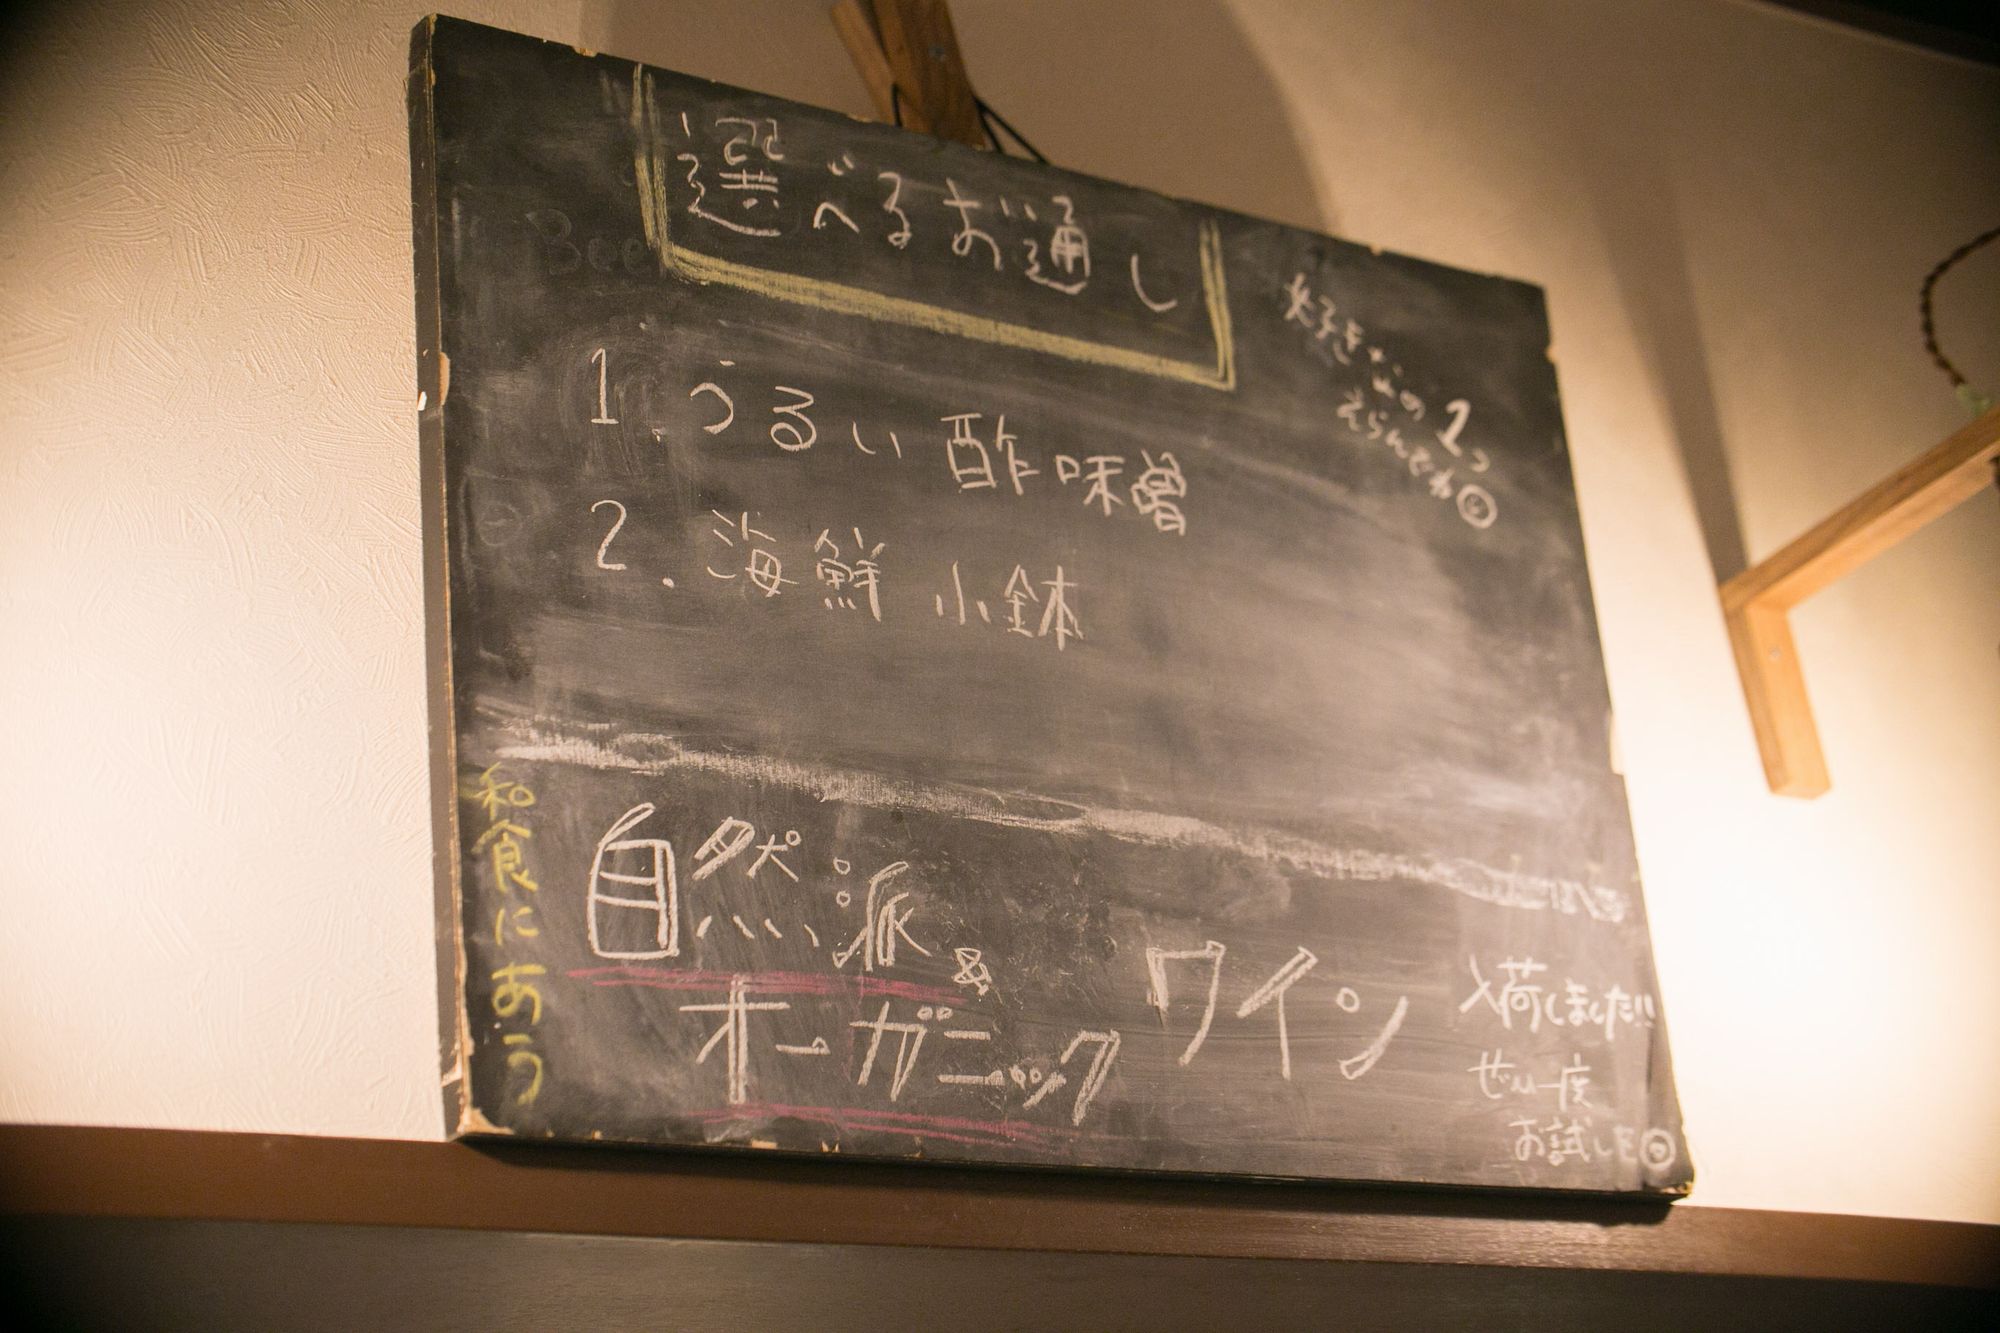 選べるお通し
好きなの1つ
えらんでね
1. うるい酢味噌
2. 海鮮小鉢
和食にあう
自然派&
オーガニック
ワイン
入荷しました!!
ぜひ一度
お試しを